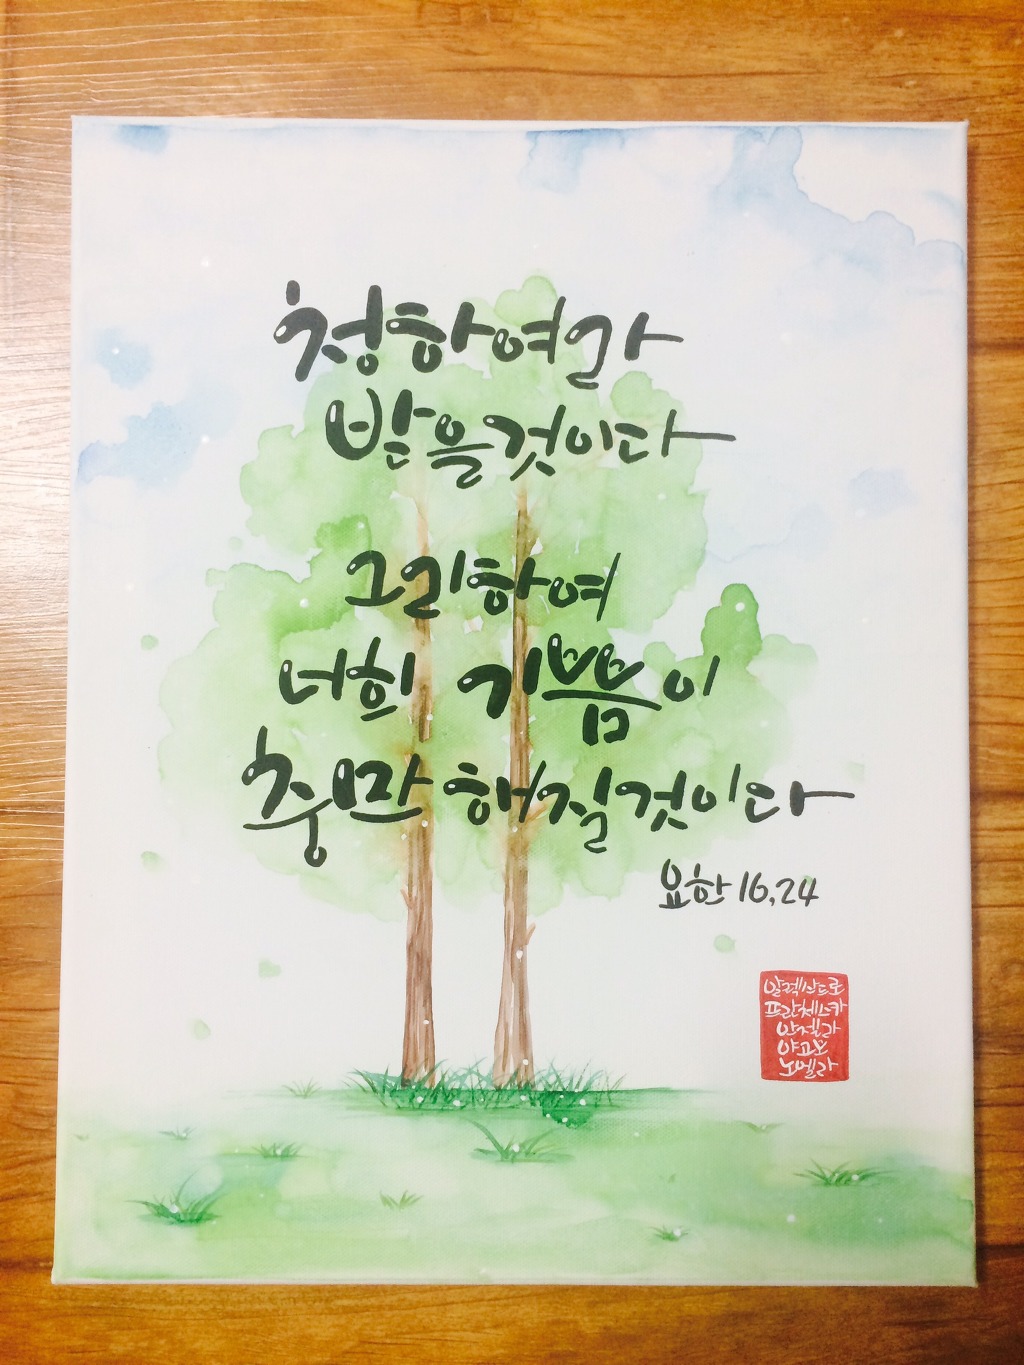 청하여라
받을것이다
그리하여
너희 기쁨이
충만해질것이다
요한 16,24
알렉산드로
프란체스카
안젤라
야고보
노엘라